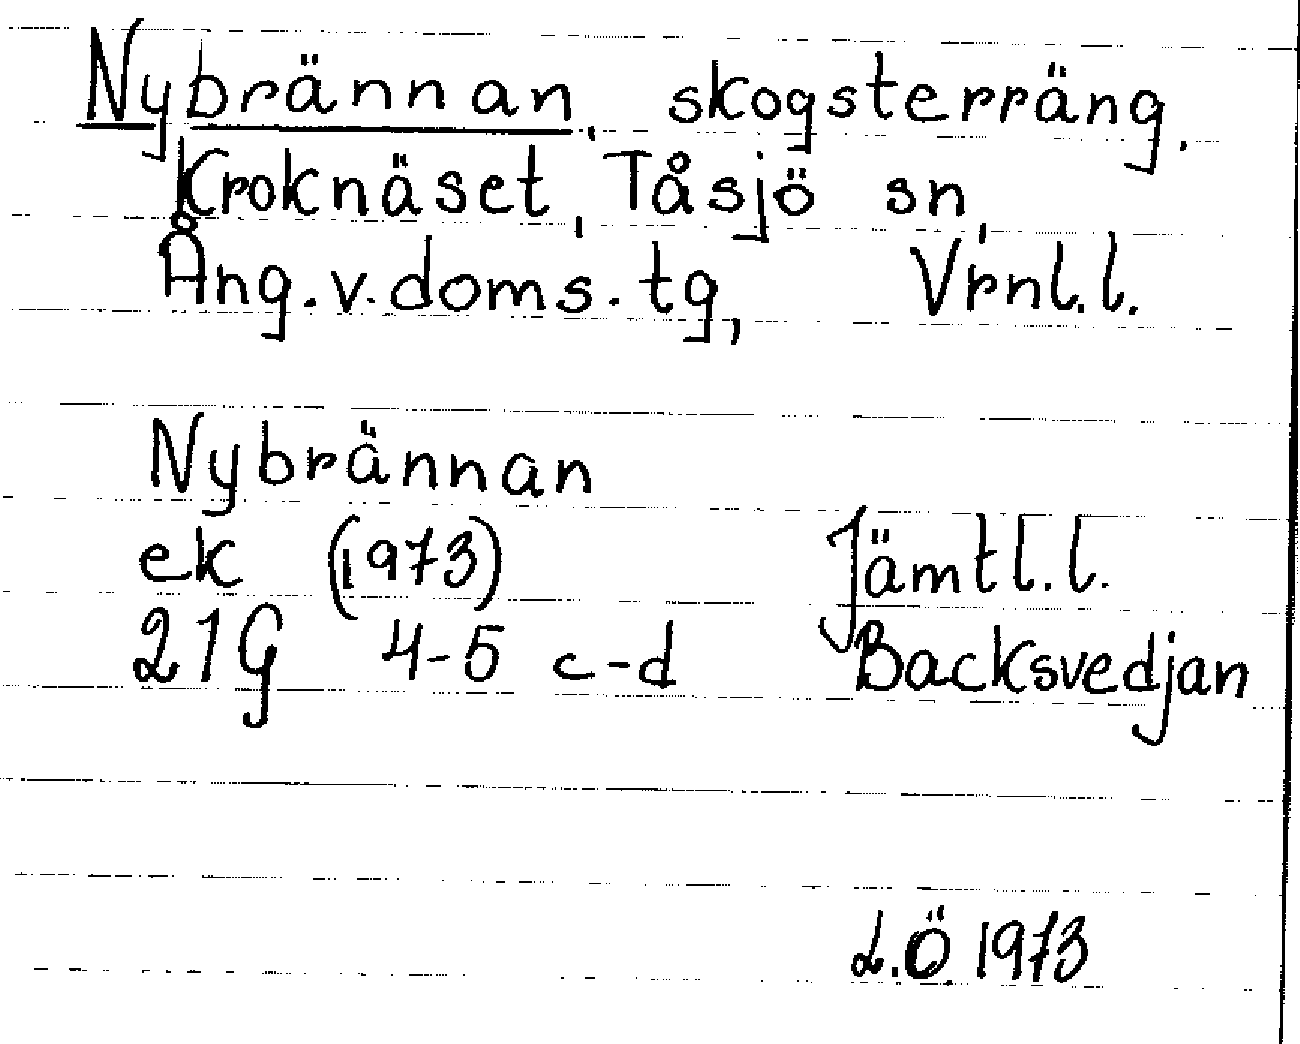 Nybrännan, skogsterräng.
Kroknäset, Tåsjö sn,
Ång.v.doms.tg, Vrnl.l.
Nybrännan
ek (1973) Jämtl.l.
21G 4-5 c-d Backsvedjan
L.Ö. 1973